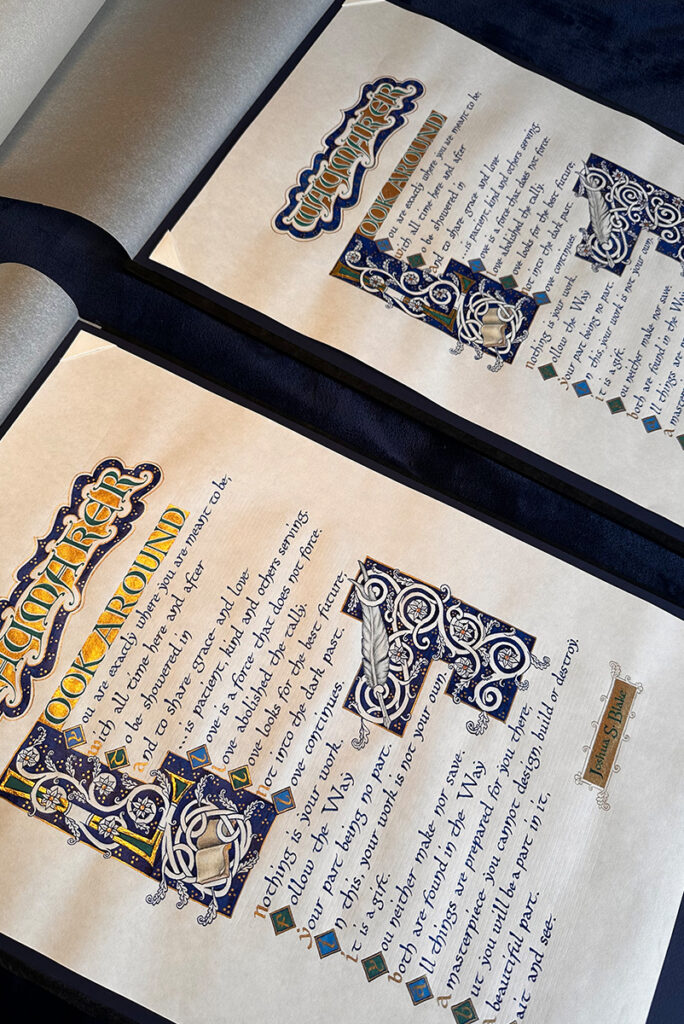 WAYMAKER
LOOK AROUND
you are exactly where you are meant to be,
with all time here and after
to be showered in
and to share grace and love
...is patient, kind and others serving.
love is a force that does not force.
love abolished the tally.
love looks for the best future,
not into the dark past.
love continues.
nothing is your work.
follow the Way
your part being no part.
In this, your work is not your own.
it is a gift.
you neither make nor save.
both are found in the Way
all things are
WAYMAKER
LOOK AROUND
you are exactly where you are meant to be,
with all time here and after
to be showered in
and to share grace and love
...is patient, kind and others serving.
love is a force that does not force.
love abolished the tally.
love looks for the best future,
not into the dark past.
love continues.
nothing is your work.
follow the Way
your part being no part.
In this, your work is not your own.
it is a gift.
you neither make nor save.
both are found in the Way
all things are prepared for you there.
a masterpiece you cannot design, build or destroy.
but you will be a part in it,
a beautiful part.
wait and see.
Joshua S.